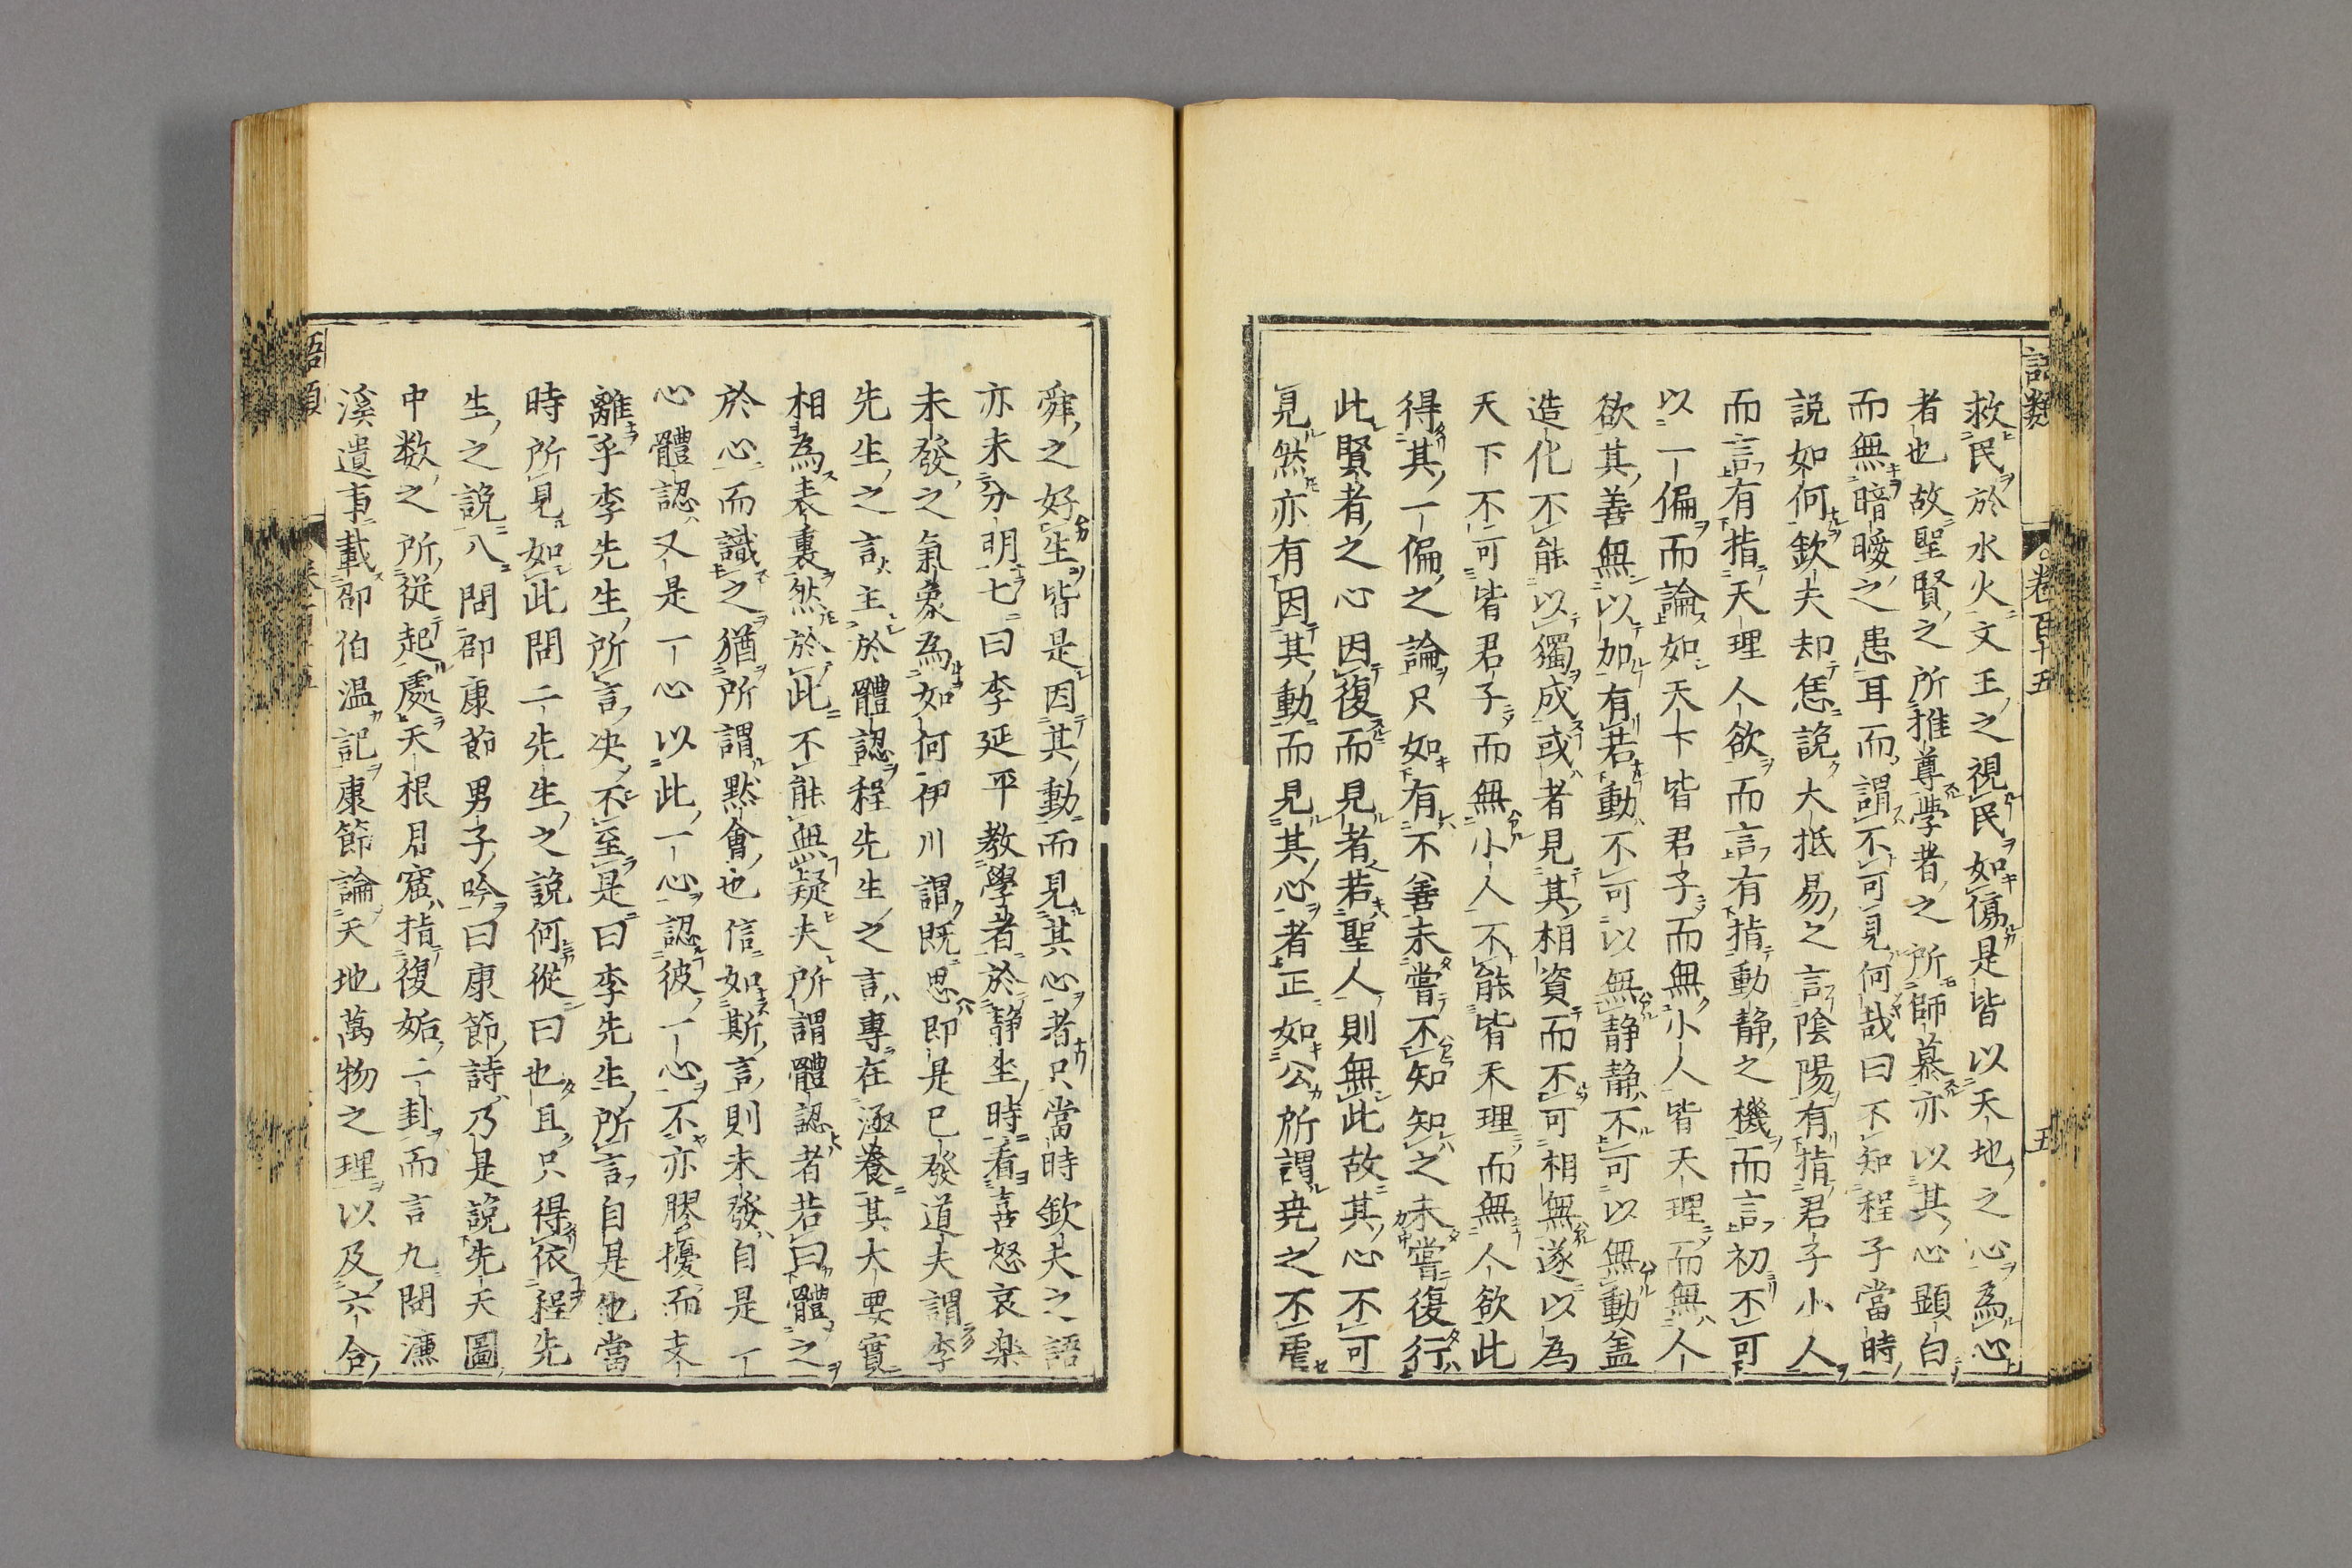 語類 卷百十五 五
救民於水火文王之視民如傷是皆以天地之心為心
者也故聖賢之所推尊学者之所師慕亦以其心顕白
而無暗曖之患耳而謂不可見何哉曰不知程子當時
說如何欽夫却恁說大抵易之言陰陽有指君子小人
而言有指天理人欲而言有指動静之機而言初不可
以一偏而論如天下皆君子而無小人皆天理而無人
欲其善無以加有若動不可以無静静不可以無動盖
造化不能以獨成或者見其相資而不可相無遂以為
天下不可皆君子而無小人不能皆天理而無人欲此
得其一偏之論只如有不善未嘗不知知之未嘗復行
此賢者之心因復而見者若聖人則無此故其心不可
見然亦有因其動而見其心者正如公所謂尭之不虐
舜之好生皆是因其動而見其心者只當時欽夫之語
亦未分明七曰李延平教學者於静坐時看喜怒哀楽
未發之氣象為如何伊川謂既思即是已發道夫謂李
先生之言主於體認程先生之言專在涵養其大要實
相為表裏然於此不能無疑夫所謂體認者若曰體之
於心而識之猶所謂黙會也信如斯言則未發自是一
心體認又是一心以此一心認彼一心不亦膠擾而支
離乎李先生所言决不至是曰李先生所言自是他當
時所見如此問二先生之說何從曰也且只得依程先
生之說八問邵康節男子吟曰康節詩乃是說先天圖
中数之所從起處天根月窟指復姤二卦而言九問濂
溪遺事載邵伯温記康節論天地萬物之理以及六合
語類